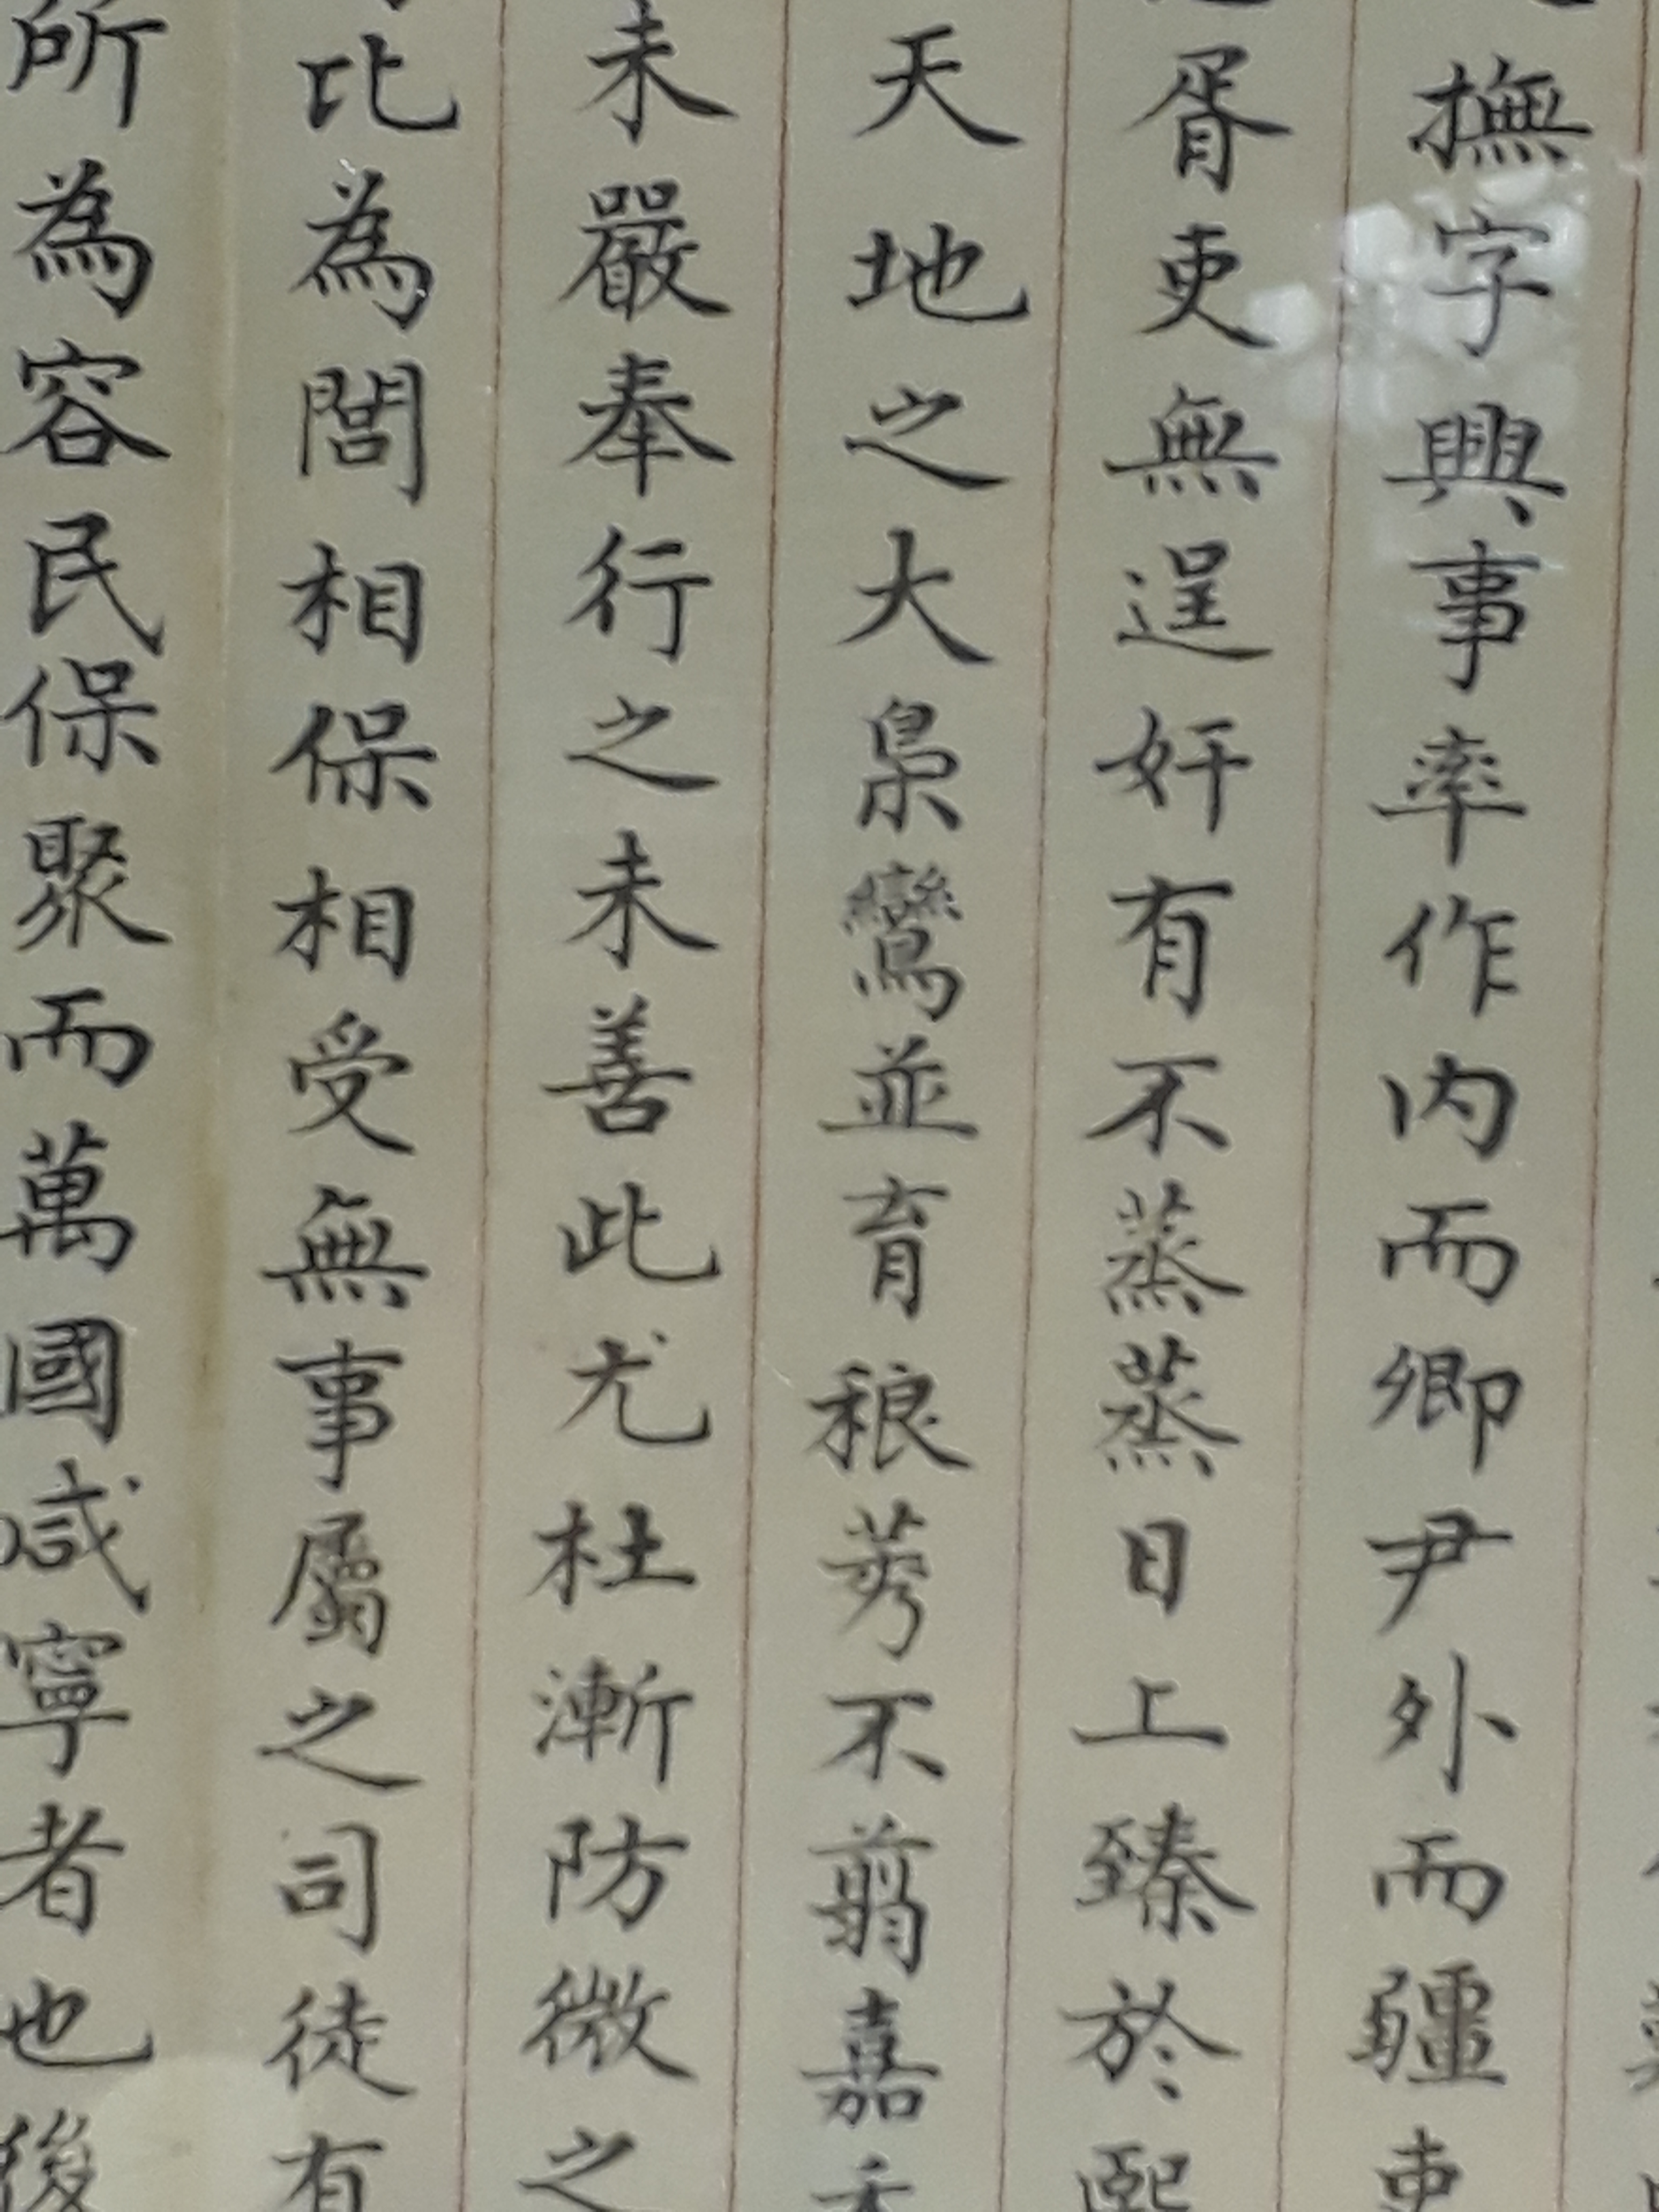 撫字興事率作内而卿尹外而疆吏
胥吏無逞奸有不蒸蒸日上臻於熙
天地之大梟鸞並育稂莠不翦嘉禾
未嚴奉行之未善此尤杜漸防微之
比為閭相保相受無事屬之司徒有
所為容民保聚而萬國咸寧者也後